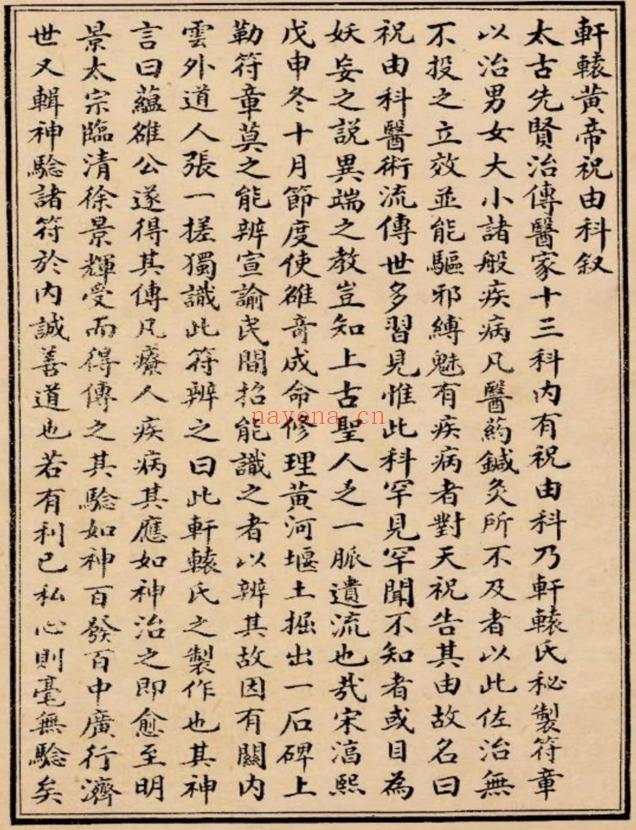 軒轅黃帝祝由科叙
太古先賢治傳醫家十三科內有祝由科乃軒轅氏秘製符章
以治男女大小諸般疾病凡醫藥鍼灸所不及者以此佐治無
不投之立效並能驅邪縛魅有疾病者對天祝告其由故名曰
祝由科醫術流傳世多習見惟此科罕見罕聞不知者或目為
妖妄之說異端之教豈知上古聖人之一脈遺流也哉宋淳熙
戊申冬十月節度使雒奇成命修理黃河堰土掘出一石碑上
勒符章莫之能辨宣諭民間招能識之者以辨其故因有闗內
雲外道人張一槎獨識此符辨之曰此軒轅氏之製作也其神
言曰蘊雒公遂得其傳凡療人疾病其應如神治之即愈至明
景太宗臨清徐景輝受而得傳之其驗如神百發百中廣行濟
世又輯神驗諸符於內誠善道也若有利己私心則毫無驗矣
nayona.cn